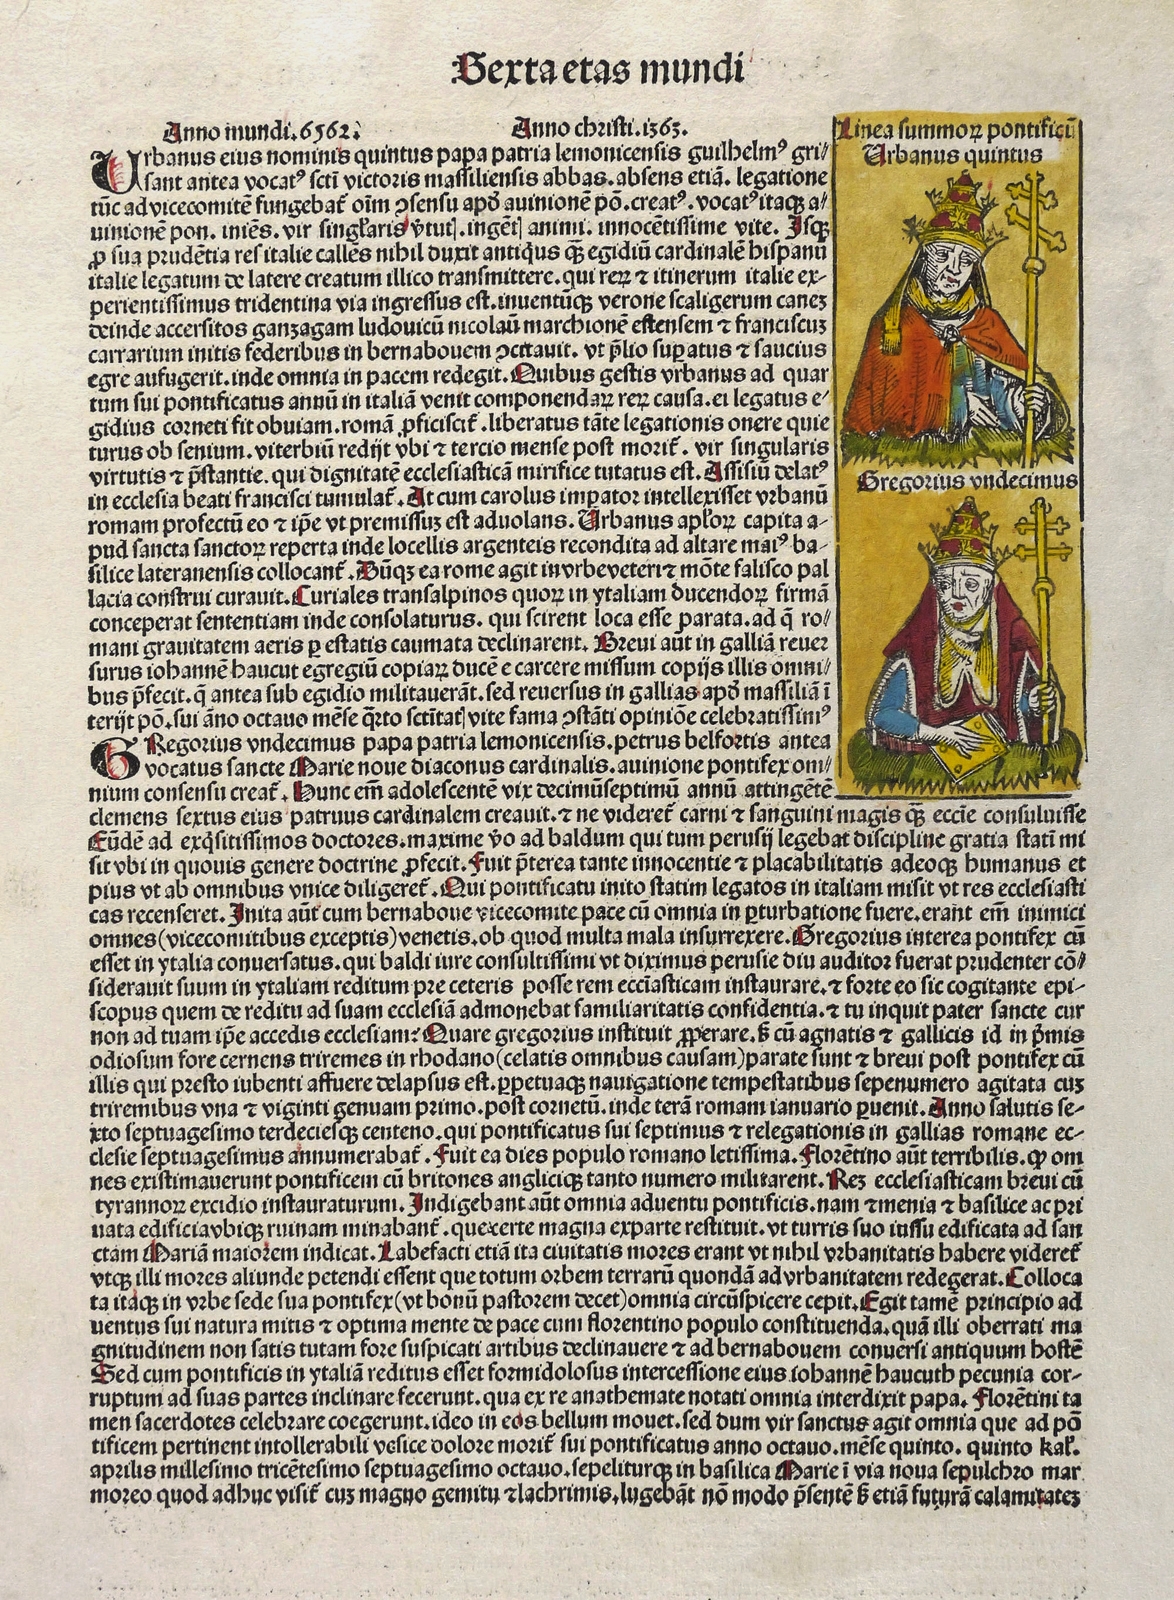 Sexta etas mundi
Anno mundi.6562. Anno christi.1363.
Linea summoꝝ pontificū
Urbanus quintus
Gregorius vndecimus
Urbanus eius nominis quintus papa patria lemonicensis guilhelmꝰ gri//
sant antea vocatꝰ scti victoris massiliensis abbas.absens etiā. legatione
tūc ad vicecomitē fungebat̄ oīm ↄsensu apd̄ auinionē pō.creatꝰ.vocatꝰ itaqꝫ a/
uinionē pon. iniēs. vir singl̄aris v̄tut].ingēt] animi. innocētissime vite. Isqꝫ
ꝓ sua prudētia res italie calles nihil duxit antiqiꝰ qꝫ̄ egidiū cardinalē hispanū
italie legatum de latere creatum illico transmittere.qui reꝝ ⁊ itinerum italie ex-
perientissimus tridentina via ingressus est.inuentūqꝫ verone scaligerum caneꝫ
deinde accersitos ganzagam ludouicū nicolaū marchionē estensem ⁊ franciscuꝫ
carrarium initis federibus in bernabouem ↄcitauit. vt p̄lio suꝑatus ⁊ saucius
egre aufugerit.inde omnia in pacem redegit.Quibus gestis vrbanus ad quar
tum sui pontificatus annū in italiā venit componendaꝝ reꝝ causa.ei legatus e/
gidius corneti fit obuiam.romā ꝓficiscit̄.liberatus tāte legationis onere quie
turus ob senium.viterbiū redijt vbi ⁊ tercio mense post morit̄. vir singularis
virtutis ⁊ p̄stantie.qui dignitatē ecclesiasticā mirifice tutatus est.Assisiū delatꝰ
in ecclesia beati francisci tumulat̄.At cum carolus imꝑator intellexisset vrbanū
romam profectū eo ⁊ ip̄e vt premissuꝫ est aduolans.Urbanus apl̄oꝝ capita a-
pud sancta sanctoꝝ reperta inde locellis argenteis recondita ad altare maiꝰ ba-
silice lateranensis collocant̄.Dūqꝫ ea rome agit in vrbeueteri ⁊ mōte falisco pal
lacia construi curauit.Curiales transalpinos quoꝝ in ytaliam ducendoꝝ firmā
conceperat sententiam inde consolaturus. qui scirent loca esse parata.ad q̄ ro/
mani grauitatem aeris ꝑ estatis caumata declinarent. Breui aūt in galliā reuer
surus iohannē haucut egregiū copiaꝝ ducē e carcere missum copijs illis omni/
bus p̄fecit.q̄ antea sub egidio militauerāt.sed reuersus in gallias apd̄ massiliā ī
terijt pō.sui āno octauo mēse q̄rto sctītat] vite fama ↄstāti opiniōe celebratissimꝰ
GRegorius vndecimus papa patria lemonicensis.petrus belfortis antea
vocatus sancte Marie noue diaconus cardinalis.auinione pontifex om/
nium consensu creat̄.Hunc em̄ adolescentē vix decimūseptimū annū attingētē
clemens sextus eius patruus cardinalem creauit.⁊ ne videret̄ carni ⁊ sanguini magis qꝫ̄ eccīe consuluisse
Eūdē ad exq̄sitissimos doctores.maxime v̄o ad baldum qui tum perusij legebat discipline gratia statī mi
sit vbi in quouis genere doctrine ꝓfecit.Fuit p̄terea tante innocentie ⁊ placabilitatis adeoqꝫ humanus et
pius vt ab omnibus vnice diligeret̄.Qui pontificatu inito statim legatos in italiam misit vt res ecclesiasti
cas recenseret.Inita aūt cum bernaboue vicecomite pace cū omnia in ꝑturbatione fuere.erant em̄ inimici
omnes(vicecomitibus exceptis)venetis.ob quod multa mala insurrexere.Gregorius interea pontifex cū
esset in ytalia conuersatus.qui baldi iure consultissimi vt diximus perusie diu auditor fuerat prudenter cō/
siderauit suum in ytaliam reditum pre ceteris posse rem eccīasticam instaurare.⁊ forte eo sic cogitante epi-
scopus quem de reditu ad suam ecclesiā admonebat familiaritatis confidentia.⁊ tu inquit pater sancte cur
non ad tuam ip̄e accedis ecclesiam? Quare gregorius instituit ꝓꝑerare.ß cū agnatis ⁊ gallicis id in p̄mis
odiosum fore cernens triremes in rhodano(celatis omnibus causam)parate sunt ⁊ breui post pontifex cū
illis qui presto iubenti affuere delapsus est.ꝑpetuaqꝫ nauigatione tempestatibus sepenumero agitata cuꝫ
triremibus vna ⁊ viginti genuam primo.post cornetū.inde terā romam ianuario ꝑuenit.Anno salutis se-
xto septuagesimo terdeciesqꝫ centeno.qui pontificatus sui septimus ⁊ relegationis in gallias romane ec-
clesie septuagesimus annumerabat̄.Fuit ea dies populo romano letissima.Florētino aūt terribilis.qꝫ om
nes existimauerunt pontificem cū britones angliciqꝫ tanto numero militarent.Reꝫ ecclesiasticam breui cū
tyrannoꝝ excidio instauraturum.Indigebant aūt omnia aduentu pontificis.nam ⁊ menia ⁊ basilice ac pri
uata edificia vbiqꝫ ruinam minabant̄.que certe magna ex parte restituit.vt turris suo iussu edificata ad san
ctam Mariā maiorem indicat.Labefacti etiā ita ciuitatis mores erant vt nihil vrbanitatis habere videret̄
vtqꝫ illi mores aliunde petendi essent que totum orbem terrarū quondā ad vrbanitatem redegerat.Colloca
ta itaqꝫ in vrbe sede sua pontifex(vt bonū pastorem decet)omnia circūspicere cepit.Egit tamē principio ad
uentus sui natura mitis ⁊ optima mente de pace cum florentino populo constituenda.quā illi oberrati ma
gnitudinem non satis tutam fore suspicati artibus declinauere ⁊ ad bernabouem conuersi antiquum hostē
Sed cum pontificis in ytaliā reditus esset formidolosus intercessione eius iohannē haucuth pecunia cor-
ruptum ad suas partes inclinare fecerunt.qua ex re anathemate notati omnia interdixit papa. Florētini ta
men sacerdotes celebrare coegerunt.ideo in eos bellum mouet.sed dum vir sanctus agit omnia que ad pō
tificem pertinent intollerabili vesice dolore morit̄ sui pontificatus anno octauo.mēse quinto. quinto kal̄.
aprilis millesimo tricētesimo septuagesimo octauo.sepeliturqꝫ in basilica Marie ī via noua sepulchro mar
moreo quod adhuc visit̄ cuꝫ magno gemitu ⁊ lachrimis.lugebāt nō modo p̄sentē ß etiā futurā calamitateꝫ